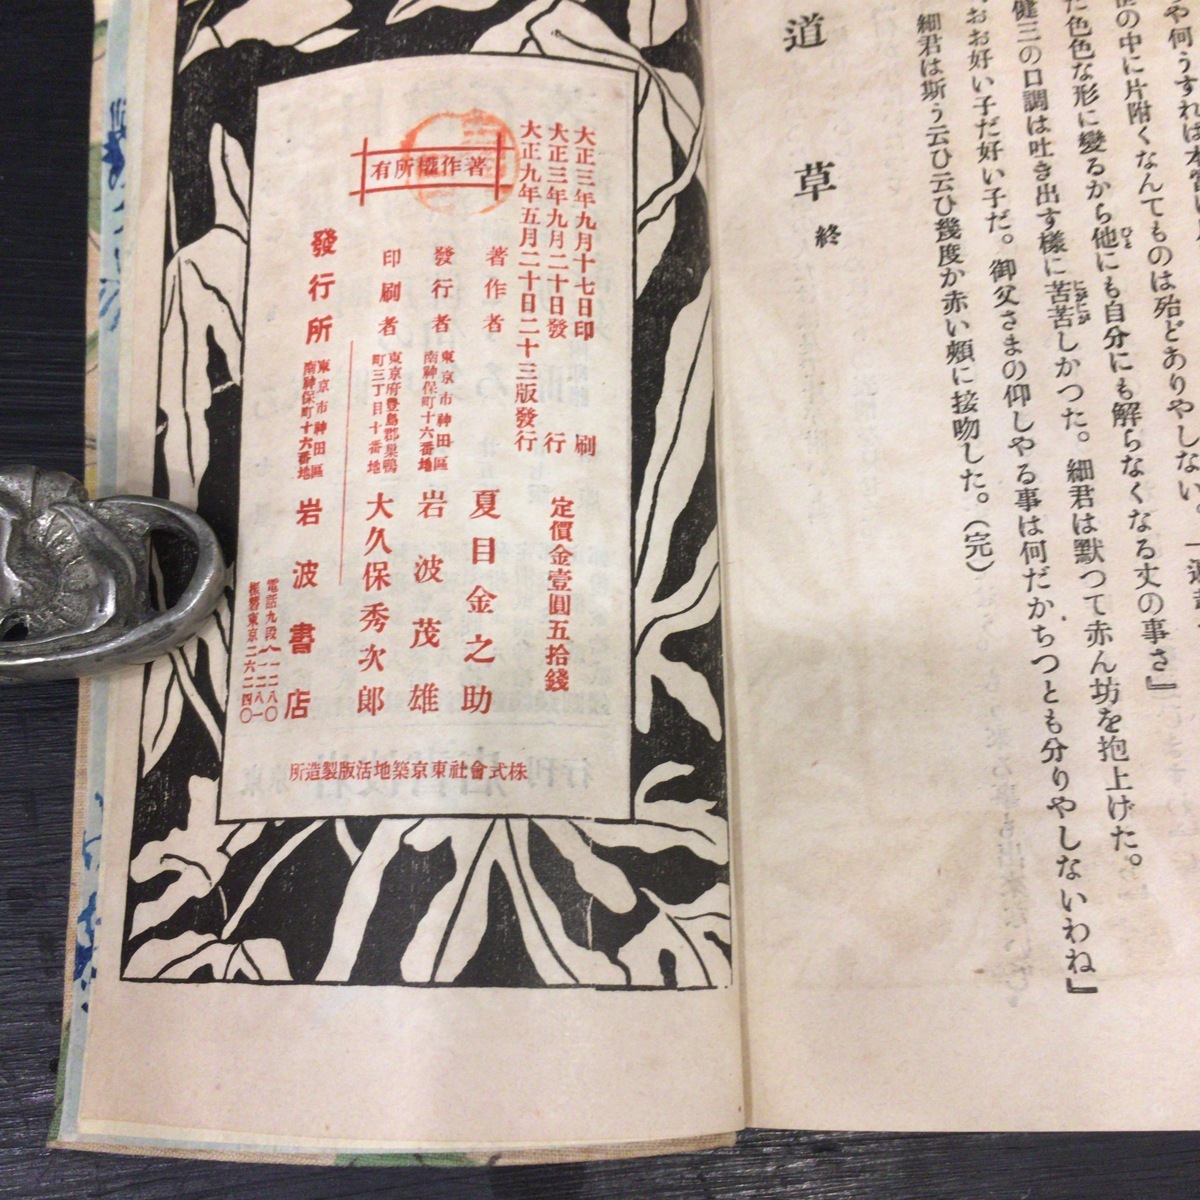 や何うすれば本當に
の中に片附くなんてものは殆どありやしない。一遍起
た色色な形に變るから他にも自分にも解らなくなる丈の事さ』
健三の口調は吐き出す樣に苦苦しかつた。細君は默つて赤ん坊を抱上げた。
おお好い子だ好い子だ。御父さまの仰しやる事は何だかちつとも分りやしないわね』
細君は斯う云ひ云ひ幾度か赤い頬に接吻した。(完)
道草 終
大正三年九月十七日印刷
大正三年九月二十日發行
大正九年五月二十日二十三版發行
定價金壹圓五拾錢
著作權所有
著作者 夏目金之助
發行者 東京市神田區南神保町十六番地 岩波茂雄
印刷者 東京府豐島郡巢鴨町三丁目十番地 大久保秀次郎
發行所 東京市神田區南神保町十六番地 岩波書店
電話九段 一二八〇 一二八一
振替東京二六二四〇
株式會社東京築地活版製造所